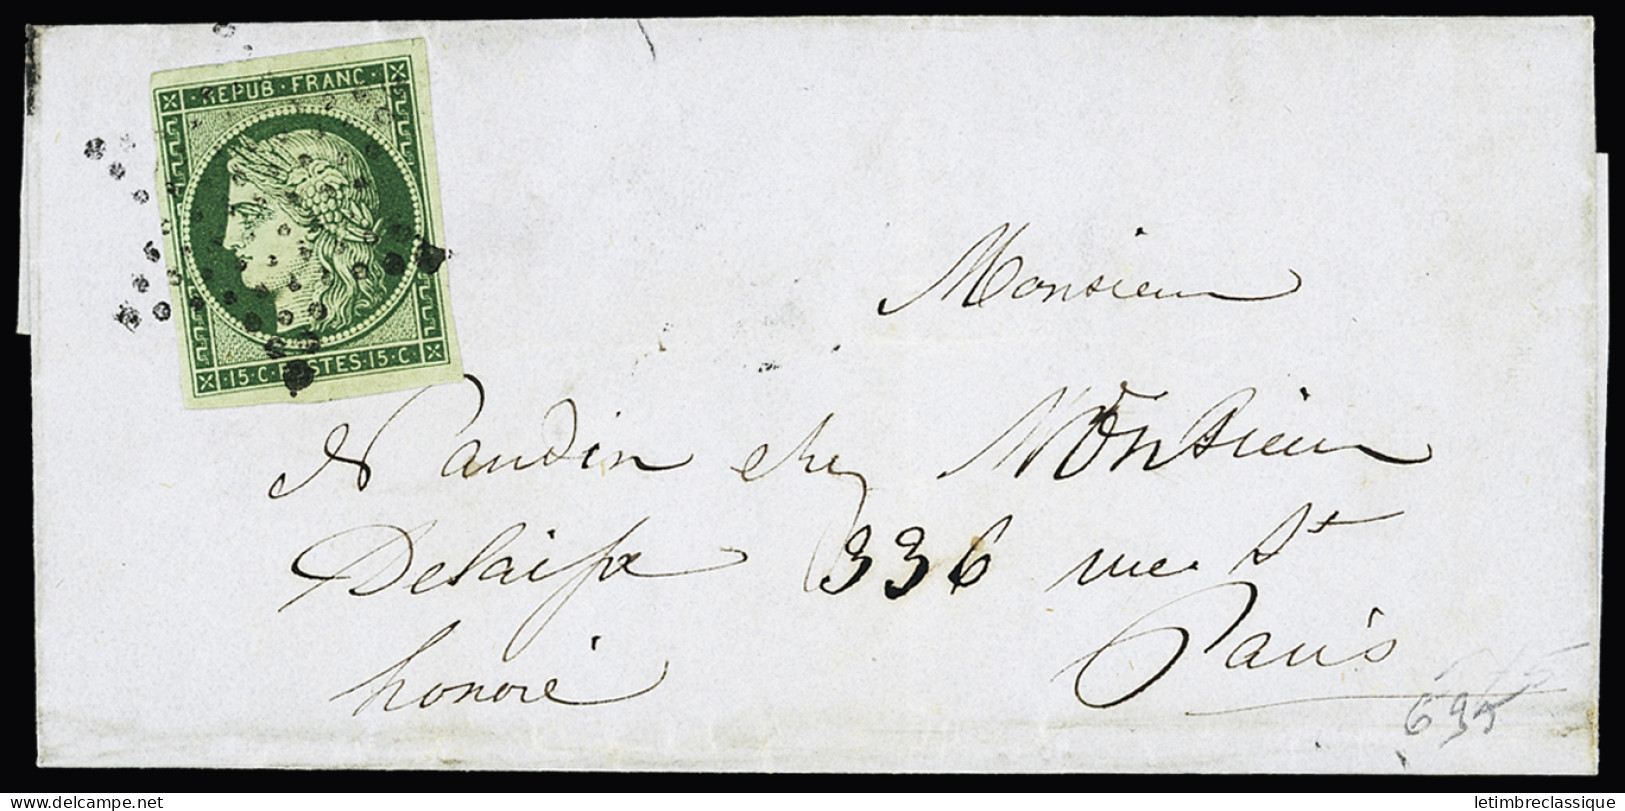 REPUB · FRANC ·
· 15 · C · POSTES · 15 · C ·
Monsieur
Naudin chez Monsieur
336 rue St
honoré Paris
www.delcampe.net
letimbreclassique